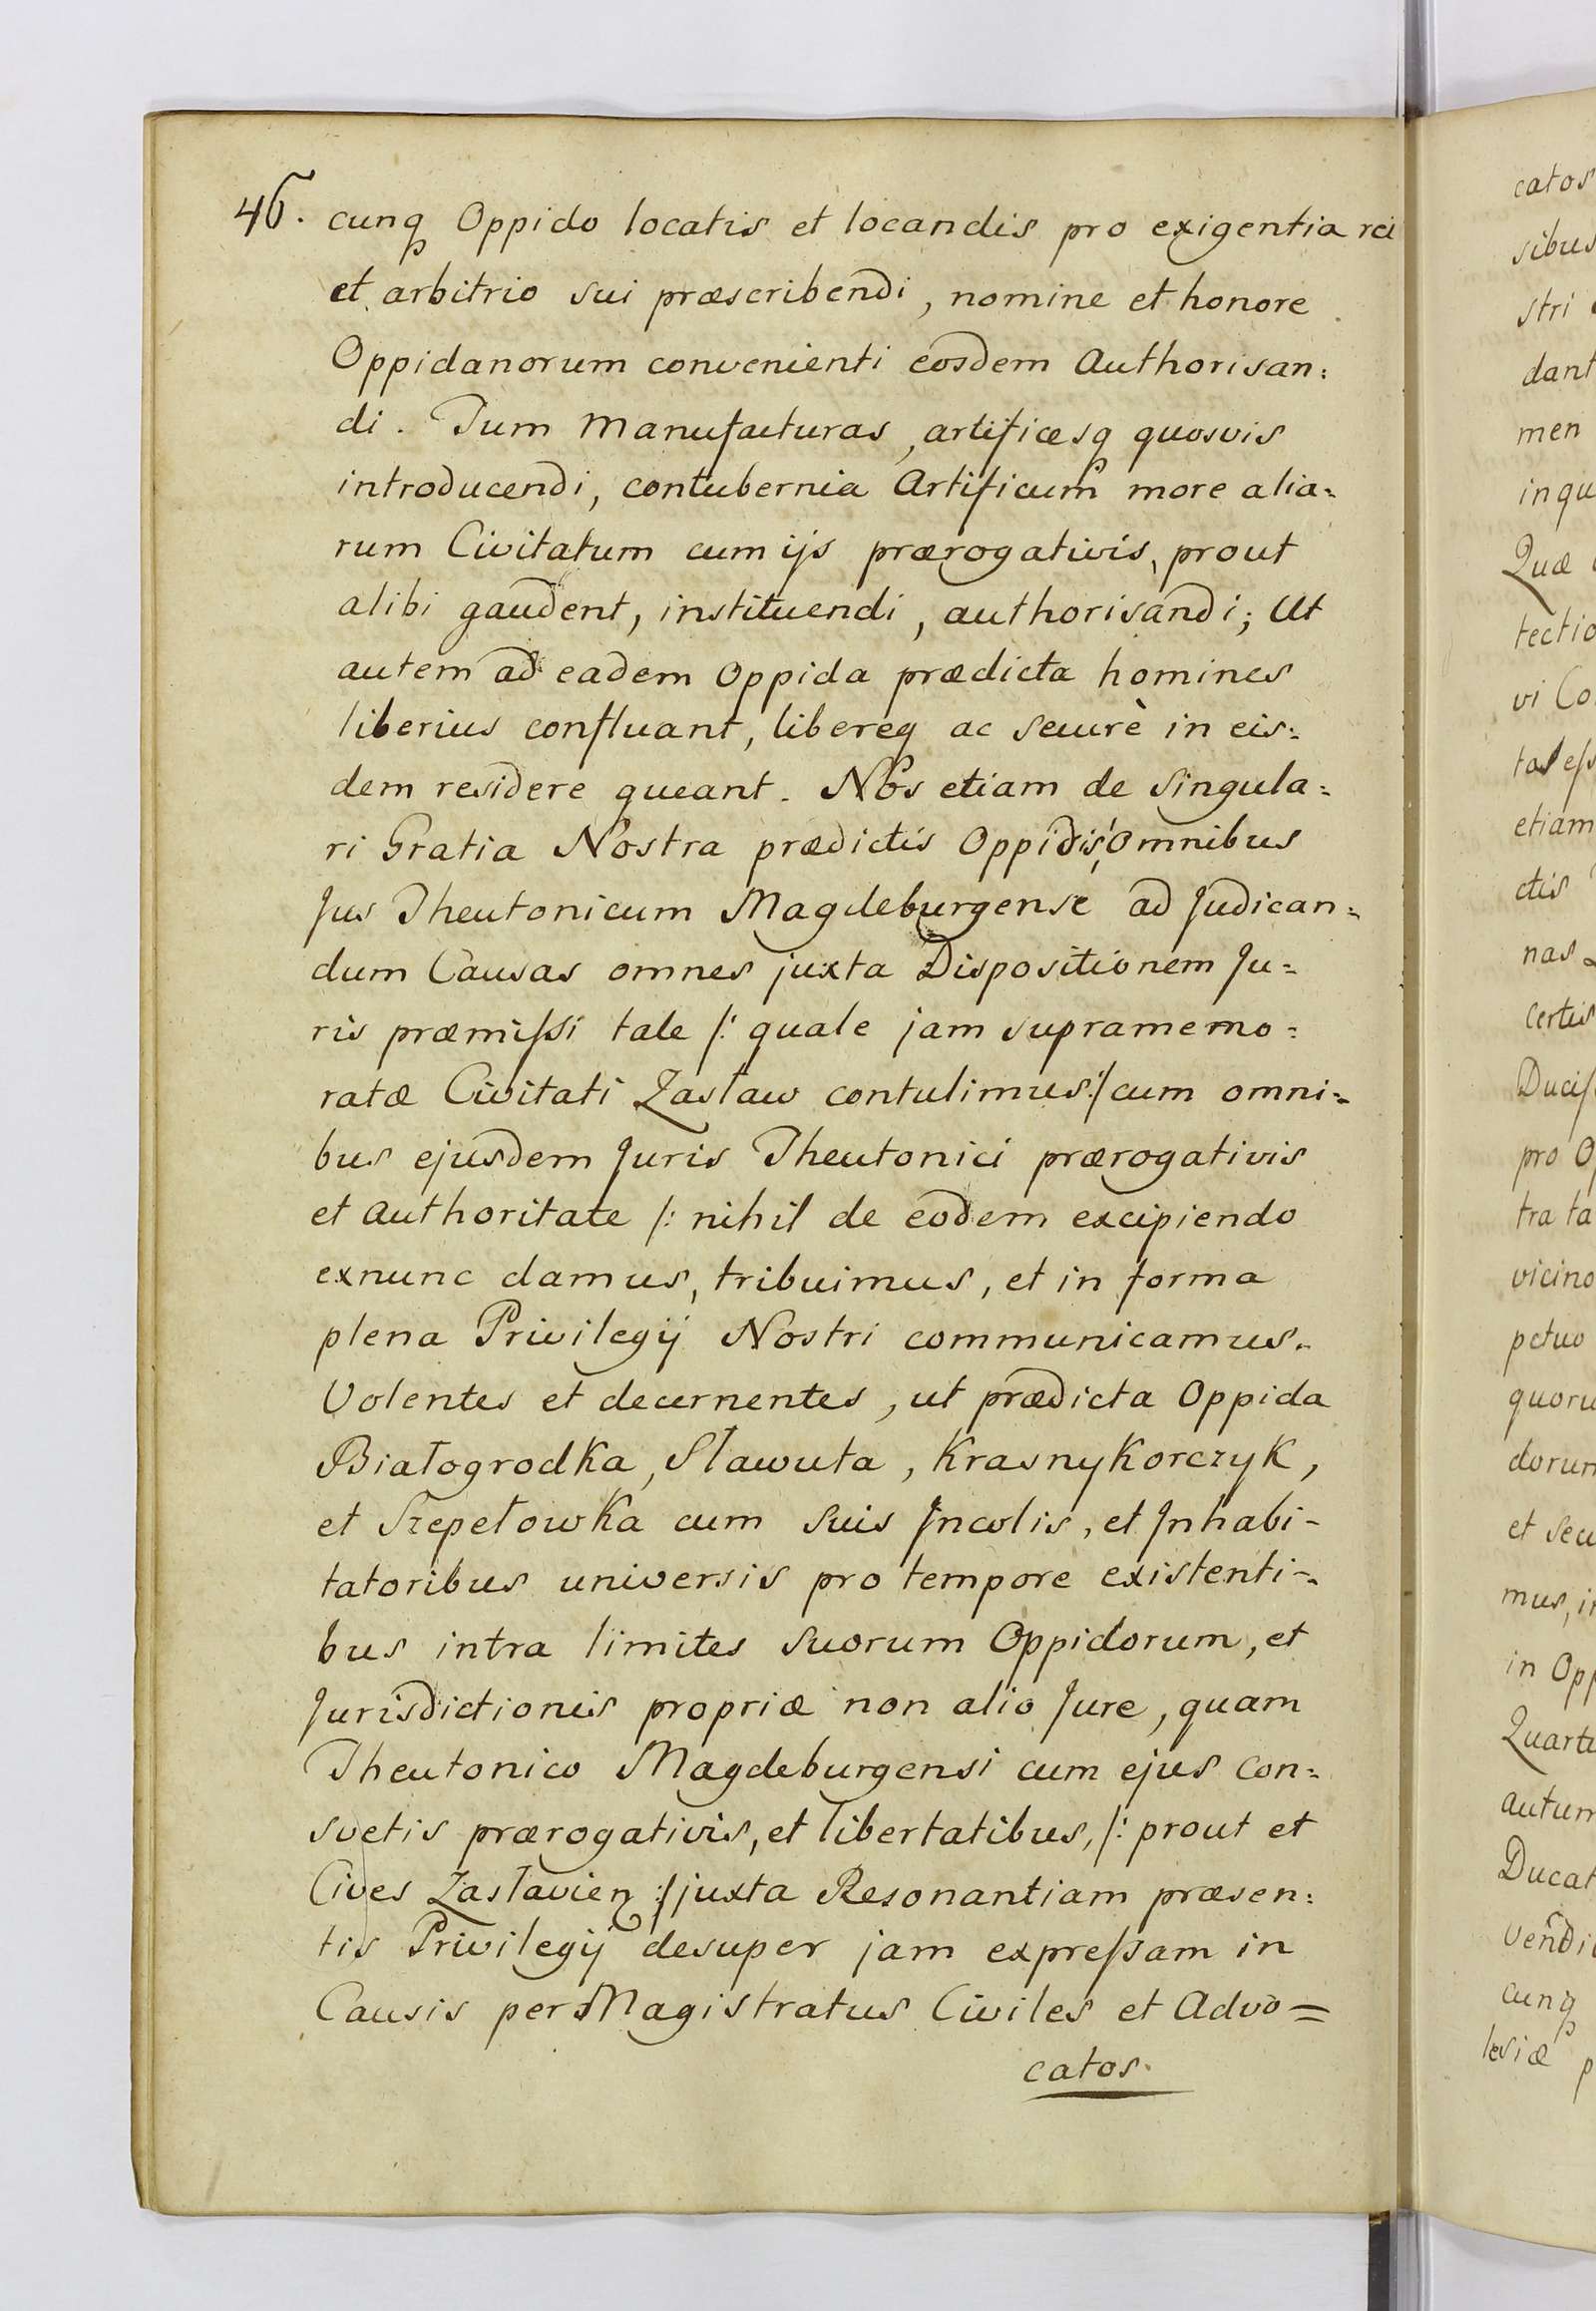 46. cunq Oppido locatis et locandis pro exigentia rei
et arbitrio sui præscribendi, nomine et honore
Oppidanorum convenienti eosdem Authorisan:
di. Tum Manufacturas, artificesq quosvis
introducendi, contubernia Artificum more alia=
rum Civitatum cum ijs prærogativis, prout
alibi gaudent, instituendi, authorisandi; Ut
autem ad eadem Oppida prædicta homines
liberius confluant, libereq ac secure in eis:
dem residere queant. Nos etiam de singula=
ri Gratia Nostra prædictis Oppidis, Omnibus
Jus Theutonicum Magdeburgense ad Judican=
dum Causas omnes juxta Dispositionem Ju=
ris præmissi tale /: quale jam supramemo=
ratæ Civitati Zasław contulimus :/ cum omni=
bus ejusdem Juris Theutonici prærogativis
et authoritate /: nihil de eodem excipiendo
exnunc damus, tribuimus, et in forma
plena Privilegij Nostri communicamus.
Volentes et decernentes, ut prædicta Oppida
Białogrodka, Sławuta, Krasnykorczyk,
et Szepetowka cum suis Jncolis, et Jnhabi-
tatoribus universis pro tempore existenti=
bus intra limites suorum Oppidorum, et
Jurisdictionis propriæ non alio Jure, quam
Theutonico Magdeburgensi cum ejus con=
svetis prærogativis, et libertatibus, /: prout et
Cives Zasłavien :/ juxta Resonantiam præsen:
tis Privilegij desuper jam expressam in
Causis per Magistratus Civiles et Advo=
catos.
catos
sibus
stri
dant
men
inqu
Quæ
tectio
vi Co
etiam
ctis
nas
certis
pro O
tra ta
vicino
petuo
quoru
dorum
et secu
mus, in
in Opp
Quarte
autum
Ducat
vendi
cunq
lesiæ p